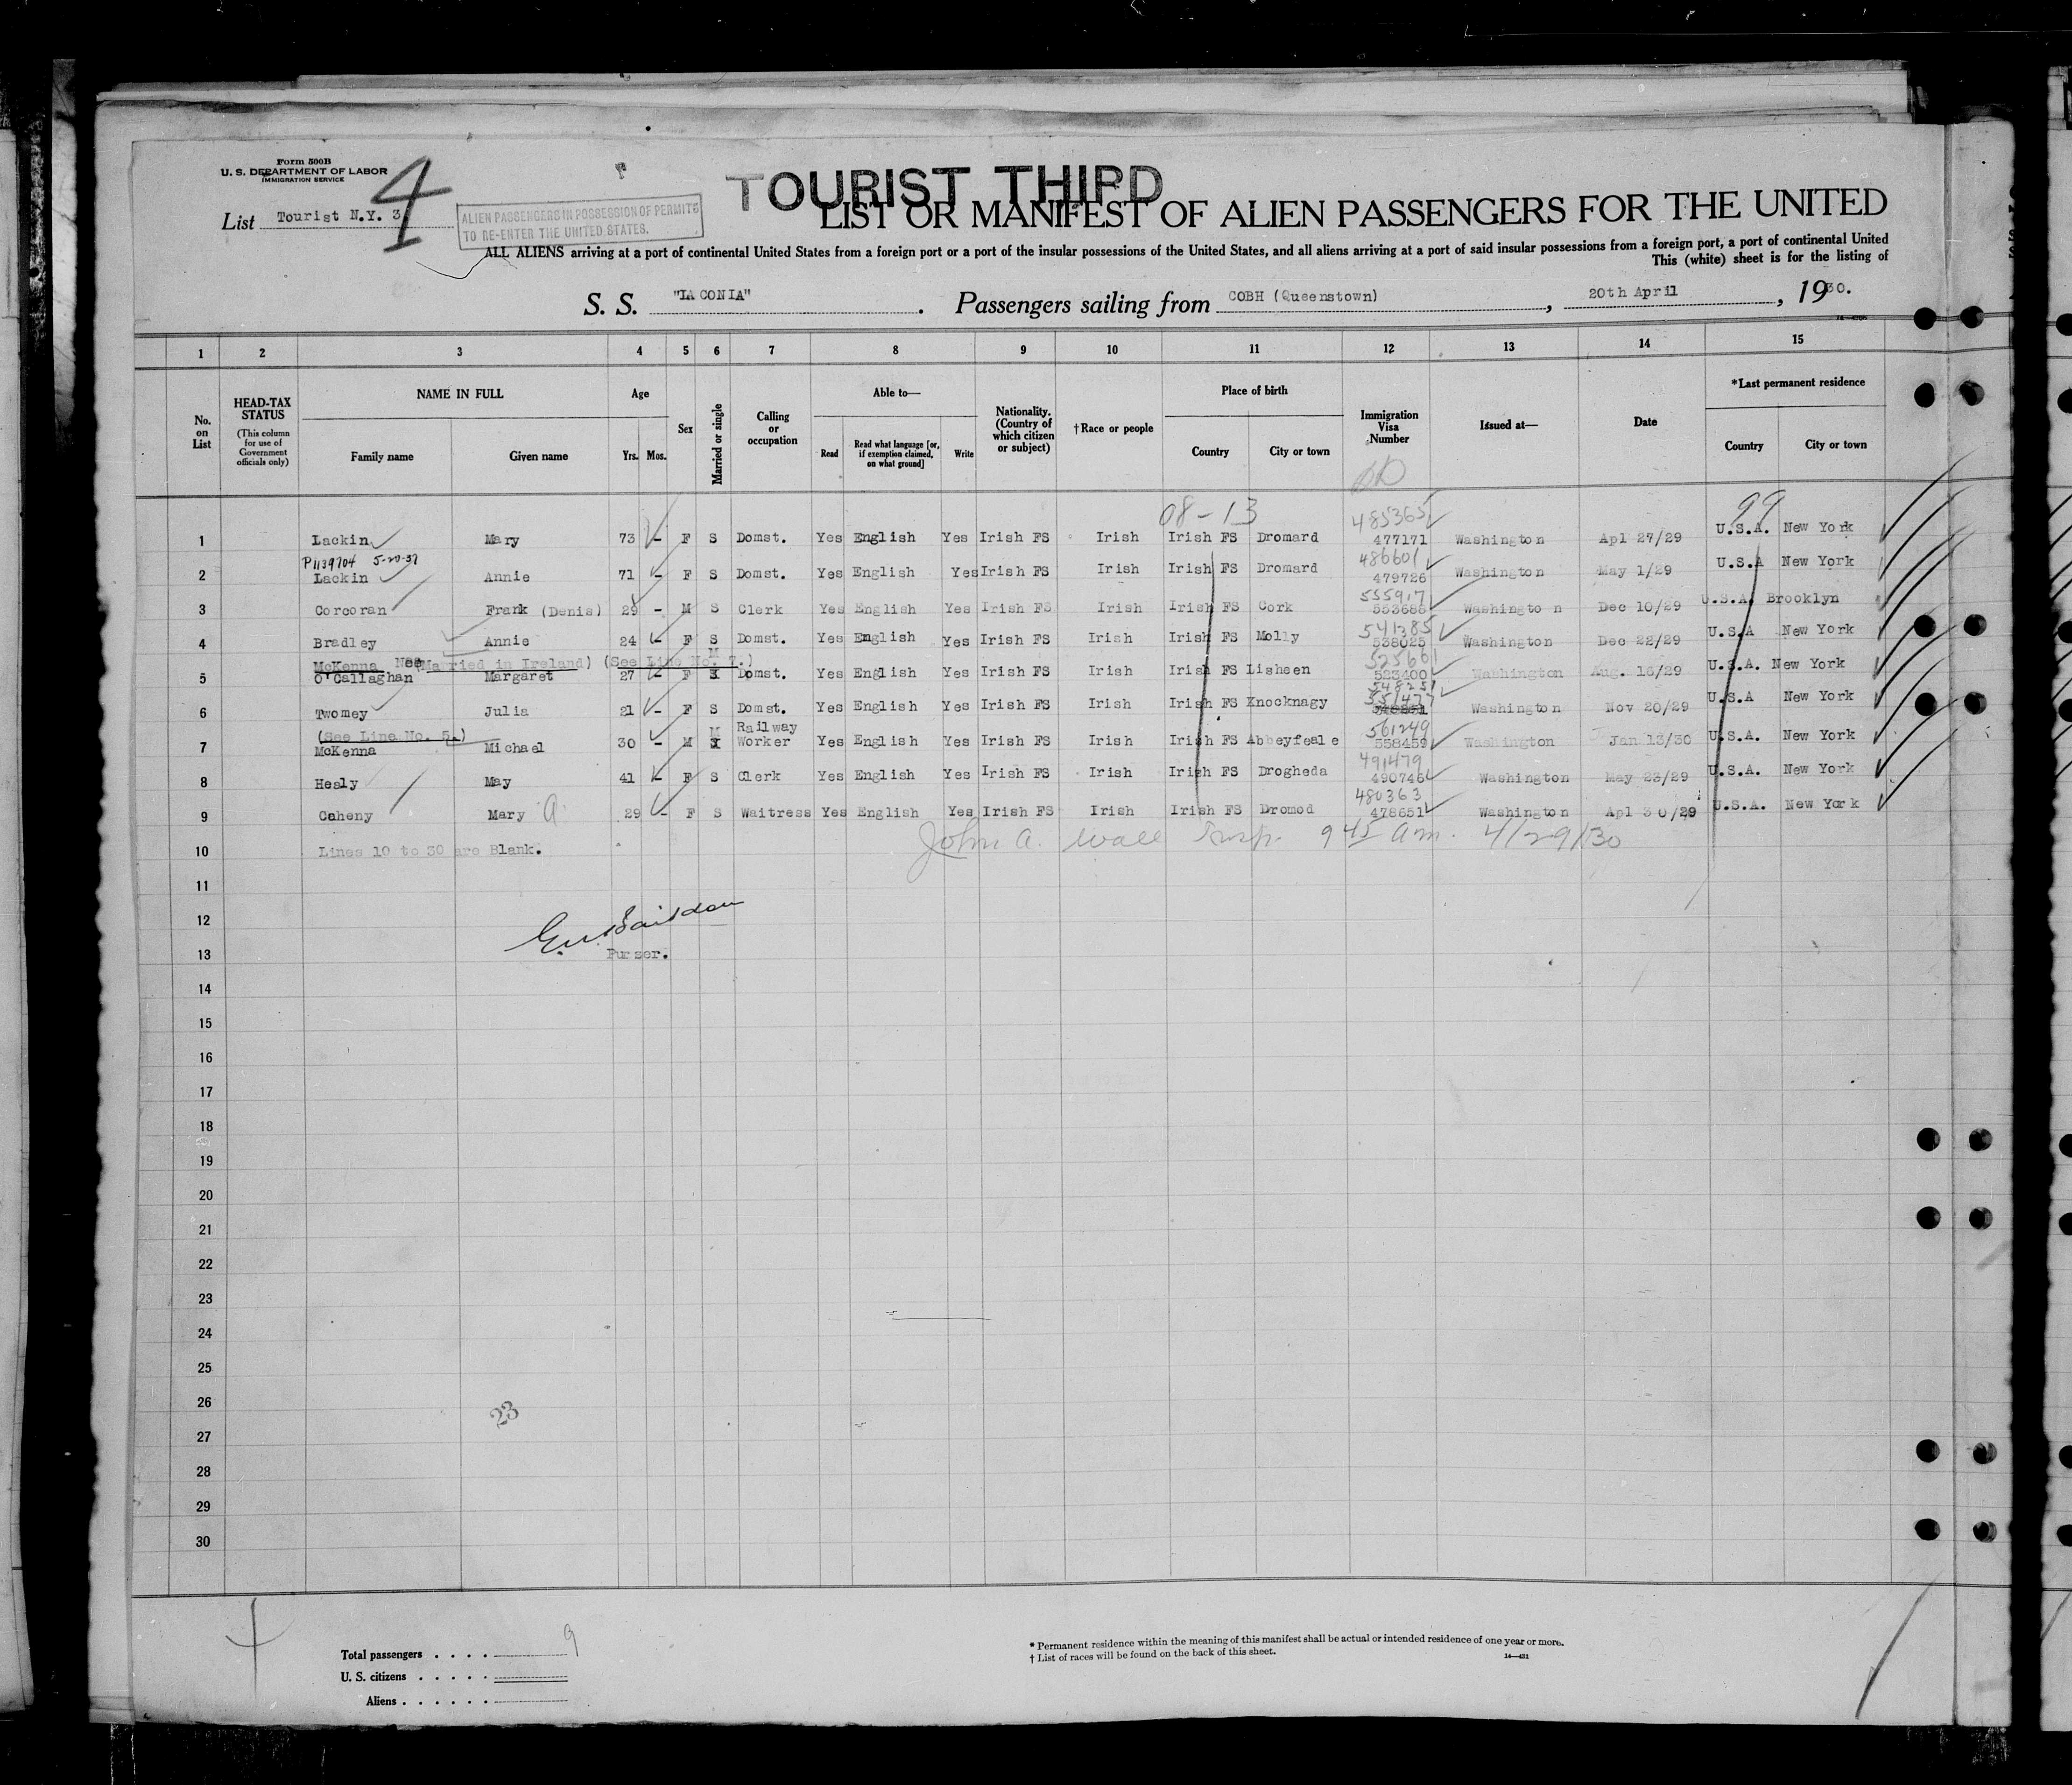 Form 500B
U. S. DEPARTMENT OF LABOR
IMMIGRATION SERVICE
4
List Tourist N.Y. 3
ALIEN PASSENGERS IN POSSESSION OF PERMITS
TO RE-ENTER THE UNITED STATES.
TOURIST THIRD
LIST OR MANIFEST OF ALIEN PASSENGERS FOR THE UNITED
ALL ALIENS arriving at a port of continental United States from a foreign port or a port of the insular possessions of the United States, and all aliens arriving at a port of said insular possessions from a foreign port, a port of continental United
This (white) sheet is for the listing of
S. S. "LACONIA". Passengers sailing from COBH (Queenstown), 20th April, 1930.
1 2 3 4 5 6 7 8 9 10 11 12 13 14 15
No. on List
HEAD-TAX STATUS (This column for use of Government officials only)
NAME IN FULL Family name Given name
Age Yrs. Mos.
Sex
Married or single
Calling or occupation
Able to— Read Read what language [or, if exemption claimed, on what ground] Write
Nationality. (Country of which citizen or subject)
†Race or people
Place of birth Country City or town
Immigration Visa Number
Issued at—
Date
*Last permanent residence Country City or town
08-13 485365 99
1 Lackin Mary 73 - F S Domst. Yes English Yes Irish FS Irish Irish FS Dromard 477171 Washington Apl 27/29 U.S.A. New York
P1139704 5-20-37 486601
2 Lackin Annie 71 - F S Domst. Yes English Yes Irish FS Irish Irish FS Dromard 479726 Washington May 1/29 U.S.A New York
555917
3 Corcoran Frank (Denis) 29 - M S Clerk Yes English Yes Irish FS Irish Irish FS Cork 553686 Washington Dec 10/29 U.S.A. Brooklyn
541385
4 Bradley Annie 24 - F S Domst. Yes English Yes Irish FS Irish Irish FS Molly 538025 Washington Dec 22/29 U.S.A New York
McKenna Nee (Married in Ireland) (See Line No. 7.) M 525661
5 O'Callaghan Margaret 27 - F Domst. Yes English Yes Irish FS Irish Irish FS Lisheen 523400 Washington Aug. 16/29 U.S.A. New York
548251
551477
6 Twomey Julia 21 - F S Domst. Yes English Yes Irish FS Irish Irish FS Knocknagy Washington Nov 20/29 U.S.A New York
(See Line No. 5.) M Railway 561249
7 McKenna Michael 30 - M Worker Yes English Yes Irish FS Irish Irish FS Abbeyfeale 558459 Washington Jan 13/30 U.S.A. New York
491479
8 Healy May 41 - F S Clerk Yes English Yes Irish FS Irish Irish FS Drogheda 490746 Washington May 23/29 U.S.A. New York
480363
9 Caheny Mary A 29 - F S Waitress Yes English Yes Irish FS Irish Irish FS Dromod 478651 Washington Apl 30/29 U.S.A. New York
John A. Wall Insp. 9 45 am. 4/29/30
10 Lines 10 to 30 are Blank.
11
12
13 Purser.
14
15
16
17
18
19
20
21
22
23
24
25
26
23
27
28
29
30
Total passengers . . . . 9
U. S. citizens . . . . .
Aliens . . . . . .
* Permanent residence within the meaning of this manifest shall be actual or intended residence of one year or more.
† List of races will be found on the back of this sheet.
14—431